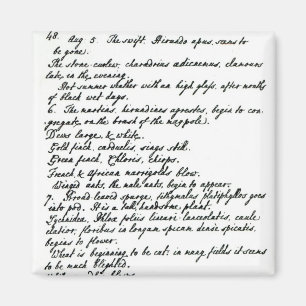 48. Aug. 5. The swift, Hirundo apus, seems to
be gone.
The stone curlew, charadrius ædicnemus, clamours
late in the evening.
Hot summer weather with an high glass, after months
of black wet days.
6. The martins, hirundines agrestes, begin to con-
gregate on the brush of the maypole.
Dews large, & white.
Gold finch, carduelis, sings still.
Green finch, Chloris, chirps.
French, & African marrigolds blow.
Winged ants, the male ants, begin to appear.
7. Broad-leaved spurge, tithymalus platiphyllos goes
into pod. It is a tall, handsome, plant.
foliis lineari lanceolatis, caule
elatior, floribus in longam spicam dense spicatis,
begins to flower.
What is beginning to be cut: in many fields it seems
to be much blighted.